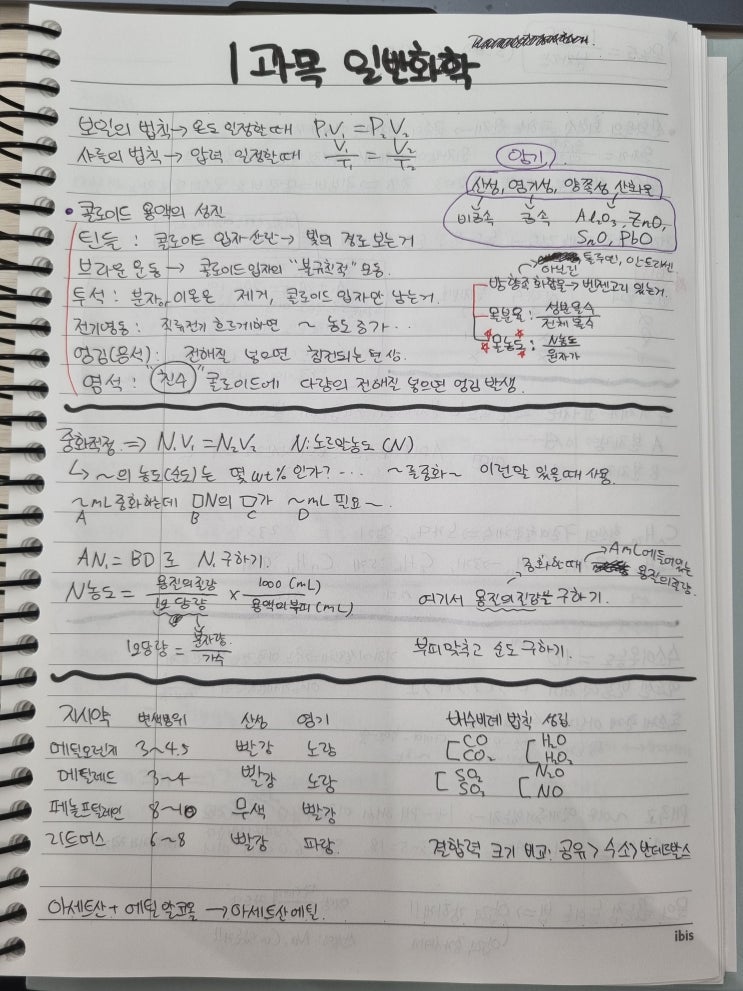 1과목 일반화학
보일의 법칙 → 온도 일정할때 P₁V₁ = P₂V₂
샤를의 법칙 → 압력 일정할때 V₁/T₁ = V₂/T₂
암기
산성, 염기성, 양쪽성 산화물
비금속 금속 Al₂O₃, ZnO,
SnO, PbO
• 콜로이드 용액의 성질
틴들 : 콜로이드 입자 산란 → 빛의 경로 보는거
브라운 운동 → 콜로이드 입자의 "불규칙적" 운동.
투석 : 분자or이온은 제거, 콜로이드 입자만 남는거.
전기영동 : 직류전기 흐르게하면 ~ 농도 증가..
엉김(응석) : 전해질 넣으면 침전되는 현상.
염석 : "친수" 콜로이드에 다량의 전해질 넣으면 엉김 발생.
아닐린 톨루엔, 안트라센
방향족 화합물 → 벤젠고리 있는거.
몰분율 : 성분몰수/전체 몰수
몰농도 : N농도/원자가
중화적정 ⇒ N₁V₁ = N₂V₂ N: 노르말농도 (N)
↳ ~의 농도(순도)는 몇 wt% 인가? … ~를 중화~ 이런말 있을때 사용.
~mL 중화하는데 □N의 □가 ~mL 필요~.
A B C D
AN₁ = BD 로 N₁ 구하기.
N농도 = 용질의 질량/1g 당량 × 1000 (mL)/용액의 부피 (mL)
중화할때 → AmL에 들어있는 용질의 질량.
여기서 용질의 질량을 구하기.
1g당량 = 분자량/가수
부피 맞추고 순도 구하기.
지시약 변색범위 산성 염기
메틸오렌지 3~4.5 빨강 노랑
메틸레드 3~4 빨강 노랑
페놀프탈레인 8~10 무색 빨강
리트머스 6~8 빨강 파랑.
배수비례 법칙 성립
CO CO₂ H₂O H₂O₂
SO₂ SO₃ N₂O NO
결합력 크기 비교: 공유 > 수소 > 반데르발스
아세트산 + 에틸 알코올 → 아세트산에틸.
ibis